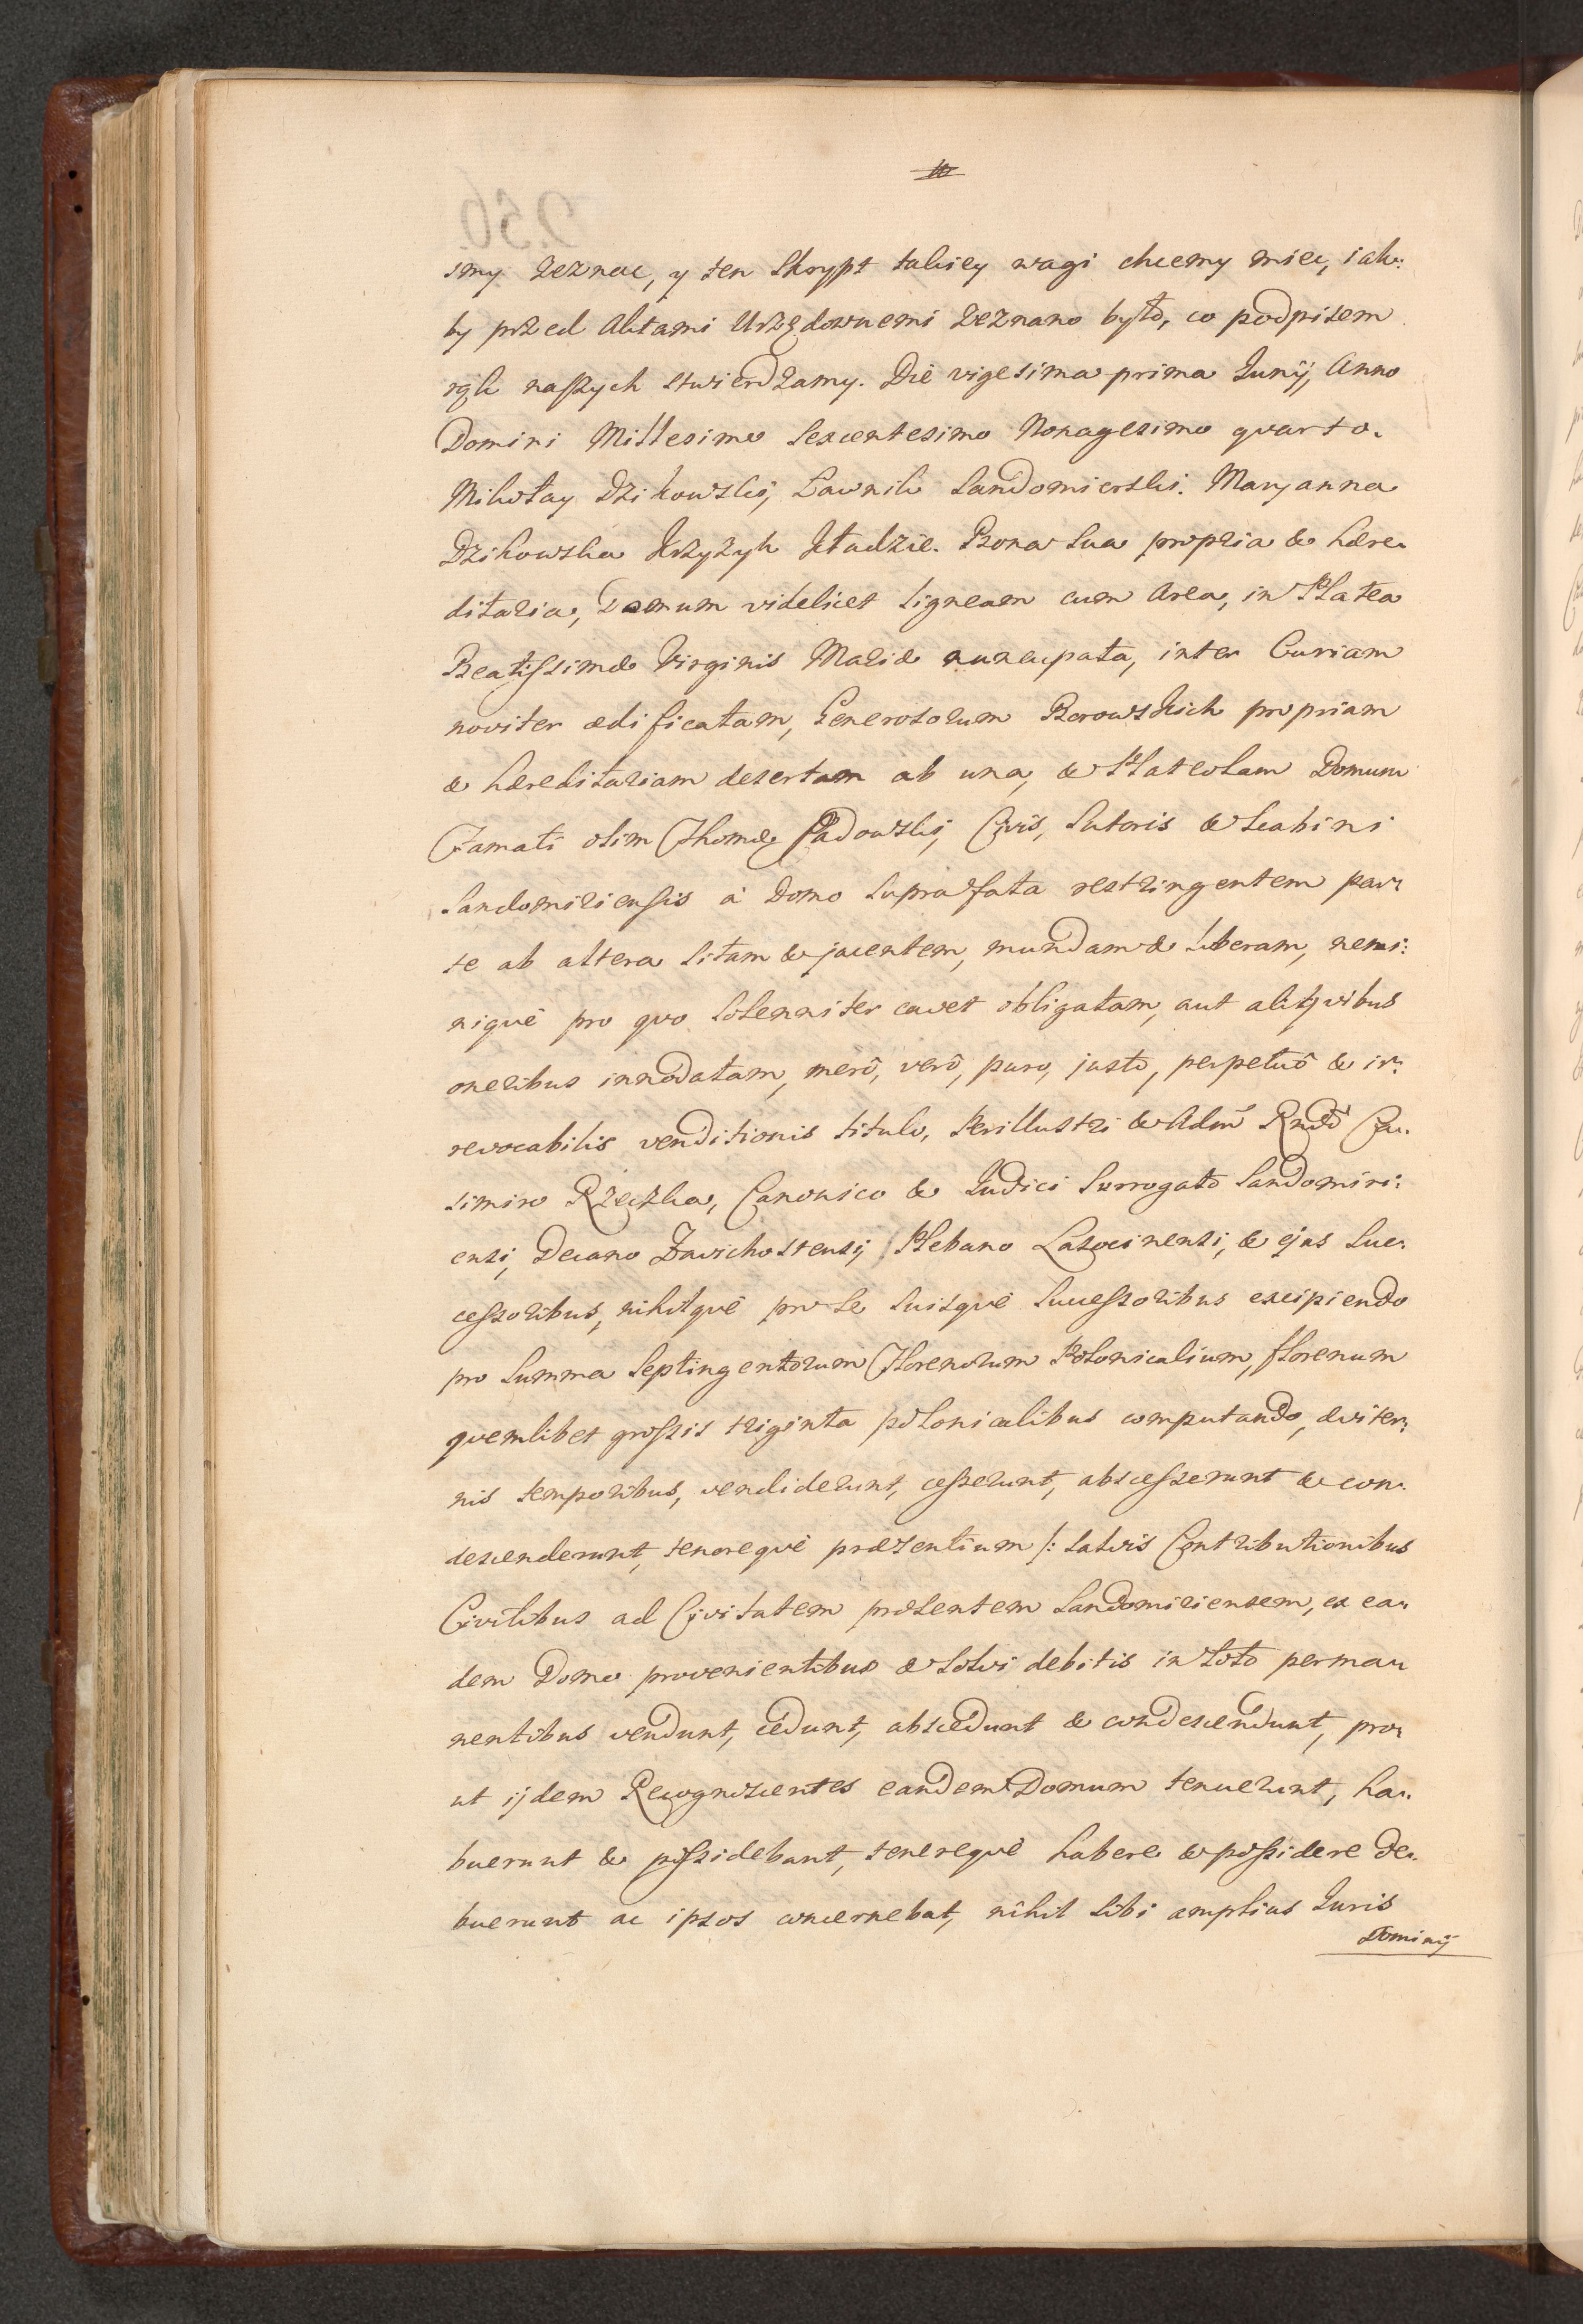 smy zeznac, y ten Skrypt takiey wagi chcemy miec, iak:
by przed Aktami Urzędownemi zeznano było, co podpisem
rąk naszych stwierdzamy. Die vigesima prima Junij, Anno
Domini Millesimo Sexcentesimo Nonagesimo quarto.
Mikołay Dzikowski, Ławnik Sandomierski. Maryanna
Dzikowska Krzyzyk kładzie. Bona sua propria & hære-
ditaria, Domum videlicet ligneam cum Area, in Platea
Beatissimæ Virginis Mariæ nuncupata, inter Curiam
noviter ædificatam, Generosorum Borowskich propriam
& hæreditariam desertam ab una, & Plateolam Domum
Famati olim Thomæ Sadowskj Civis, Sutoris & Scabini
Sandomiriensis à Domo suprafata restringentem par-
te ab altera sitam & jacentem, mundam & liberam, nemi:
niquè pro quo solenniter cavet obligatam, aut aliquibus
oneribus innodatam, merô, verô, puro, justô, perpetuô & ir:
revocabilis venditionis titulo, Perillustri & Adm̃ Rndõ Ca-
simiro Rzeczka, Canonico & Judici Surrogato Sandomiri:
ensi, Decano Zavichostensi, Plebano Lasocinensi, & ejus Suc-
cessoribus, nihilquè pro se suisquè Successoribus excipiendo
pro Summa Septingentorum Florenorum Polonicalium, florenum
quemlibet grossis triginta polonicalibus computando, æviter:
nis temporibus, vendiderunt, cesserunt, abscesserunt & con-
descenderunt, tenorequè præsentium /: salvis Contributionibus
Civilibus ad Civitatem præsentem Sandomiriensem, ex ea-
dem Domo provenientibus & solvi debitis in toto perma-
nentibus vendunt, cedunt, abscedunt & condescendunt, pro-
ut ijdem Recognoscentes eandem Domum tenuerunt, ha-
buerunt & possidebant, tenerequè habere & possidere de-
buerunt ac ipsos concernebat, nihil sibi amplius Juris
Dominij